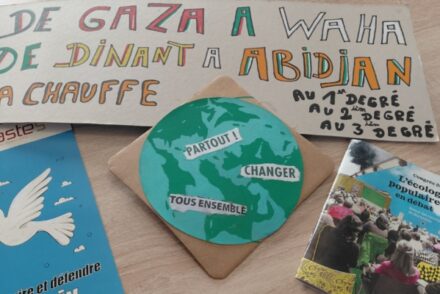 DE GAZA A WAHA
DE DINANT A ABIDJAN
A CHAUFFE
AU 1er DEGRÉ
AU 2ième DEGRÉ
AU 3ième DEGRÉ
PARTOUT !
CHANGER
TOUS ENSEMBLE
et défendre
L'écologie
populaire
en débat